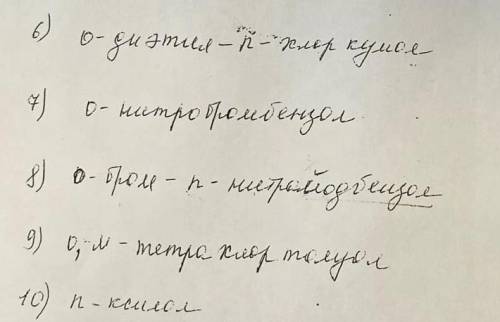 6) о-диэтил-п-хлоркумол
7) о-нитробромбензол
8) о-бром-п-нитроиодбензол
9) о,м-тетрахлортолуол
10) п-ксилол